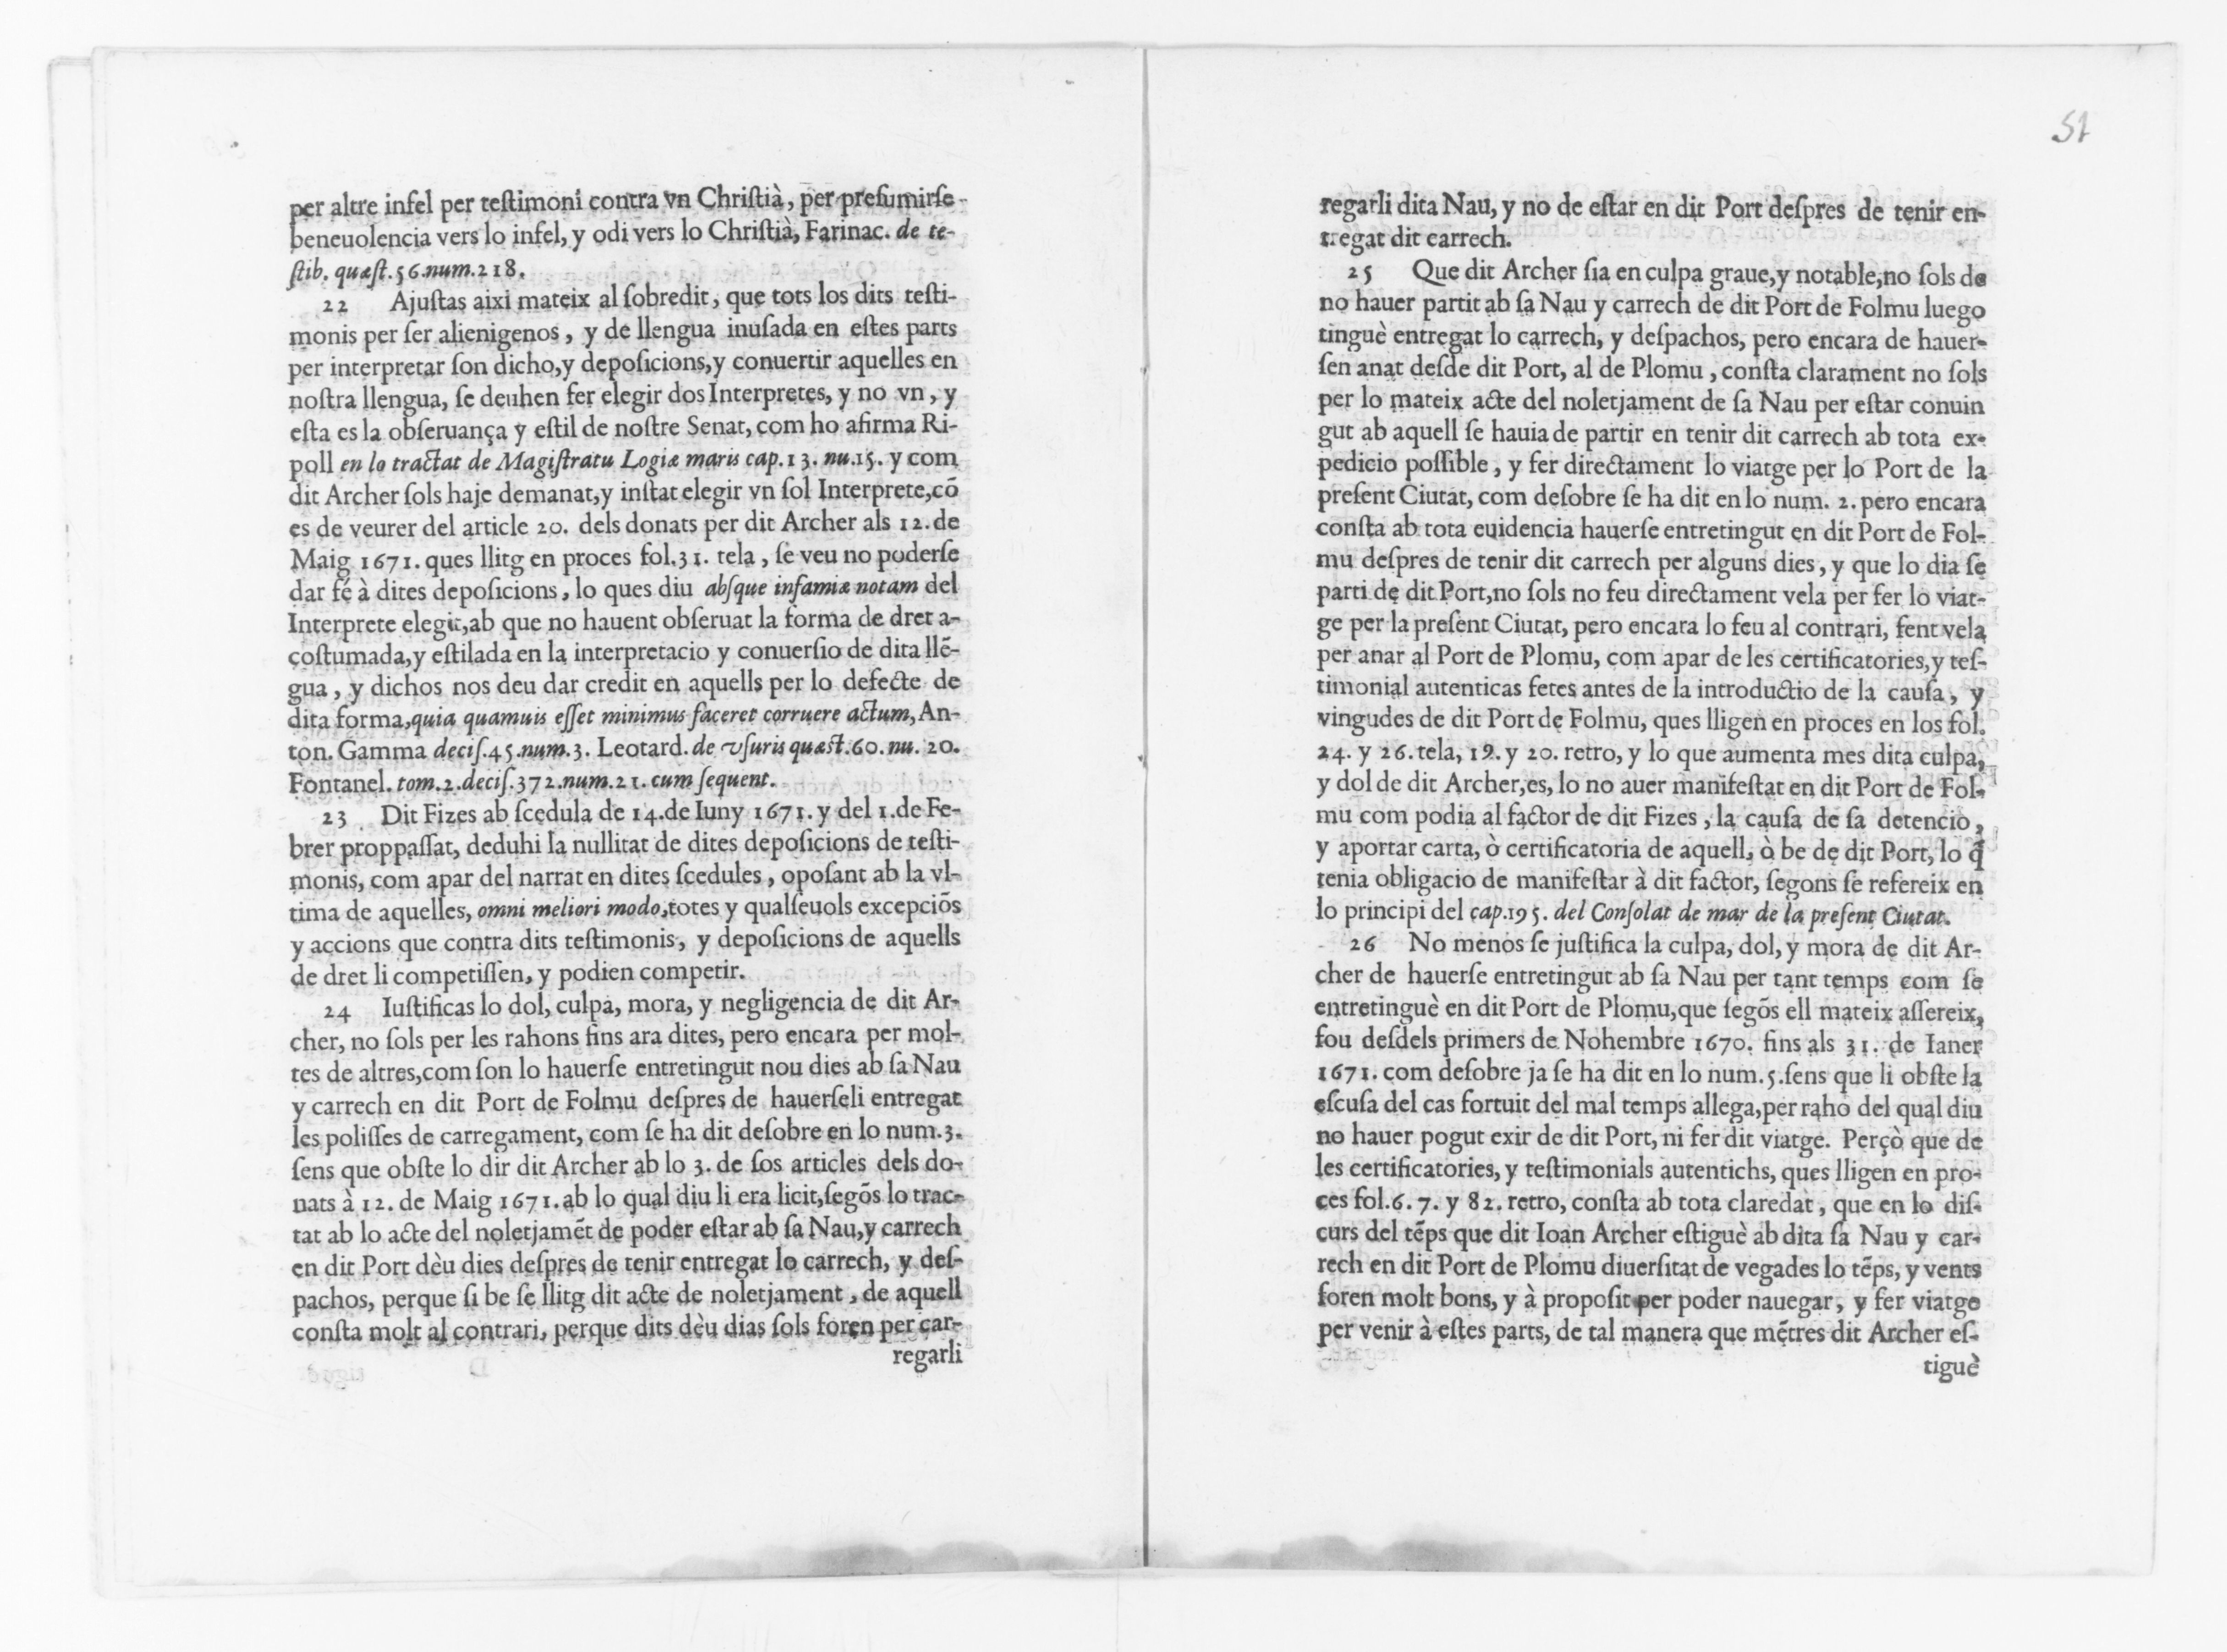 per altre infel per teſtimoni contra vn Chriſtià, per preſumirſe
beneuolencia vers lo infel, y odi vers lo Chriſtià, Farinac. de te-
ſtib. quæſt.56.num.218.
22 Ajuſtas aixi mateix al ſobredit, que tots los dits teſti-
monis per ſer alienigenos, y de llengua inuſada en eſtes parts
per interpretar ſon dicho,y depoſicions,y conuertir aquelles en
noſtra llengua, ſe deuhen fer elegir dos Interpretes, y no vn, y
eſta es la obſeruança y eſtil de noſtre Senat, com ho afirma Ri-
poll en lo tractat de Magiſtratu Logiæ maris cap.13. nu.15. y com
dit Archer ſols haje demanat,y inſtat elegir vn ſol Interprete,cõ
es de veurer del article 20. dels donats per dit Archer als 12.de
Maig 1671. ques llitg en proces fol.31. tela, ſe veu no poderſe
dar fé à dites depoſicions, lo ques diu abſque infamiæ notam del
Interprete elegit,ab que no hauent obſeruat la forma de dret a-
coſtumada,y eſtilada en la interpretacio y conuerſio de dita llẽ-
gua, y dichos nos deu dar credit en aquells per lo defecte de
dita forma,quia quamuis eſſet minimus faceret corruere actum, An-
ton. Gamma deciſ.45.num.3. Leotard. de vſuris quæst.60. nu. 20.
Fontanel. tom.2.deciſ.372.num.21. cum ſequent.
23 Dit Fizes ab ſcedula de 14.de Iuny 1671. y del 1.de Fe-
brer proppaſſat, deduhi la nullitat de dites depoſicions de teſti-
monis, com apar del narrat en dites ſcedules, opoſant ab la vl-
tima de aquelles, omni meliori modo,totes y qualſeuols excepciõs
y accions que contra dits teſtimonis, y depoſicions de aquells
de dret li competiſſen, y podien competir.
24 Iuſtificas lo dol, culpa, mora, y negligencia de dit Ar-
cher, no ſols per les rahons fins ara dites, pero encara per mol-
tes de altres,com ſon lo hauerſe entretingut nou dies ab ſa Nau
y carrech en dit Port de Folmu deſpres de hauerſeli entregat
les poliſſes de carregament, com ſe ha dit deſobre en lo num.3.
ſens que obſte lo dir dit Archer ab lo 3. de ſos articles dels do-
nats à 12. de Maig 1671.ab lo qual diu li era licit,ſegõs lo trac-
tat ab lo acte del noletjamẽt de poder eſtar ab ſa Nau,y carrech
en dit Port dèu dies deſpres de tenir entregat lo carrech, y deſ-
pachos, perque ſi be ſe llitg dit acte de noletjament, de aquell
conſta molt al contrari, perque dits dèu dias ſols foren per car-
regarli
51
regarli dita Nau, y no de eſtar en dit Port deſpres de tenir en-
tregat dit carrech.
25 Que dit Archer ſia en culpa graue,y notable,no ſols de
no hauer partit ab ſa Nau y carrech de dit Port de Folmu luego
tinguè entregat lo carrech, y deſpachos, pero encara de hauer-
ſen anat deſde dit Port, al de Plomu, conſta clarament no ſols
per lo mateix acte del noletjament de ſa Nau per eſtar conuin
gut ab aquell ſe hauia de partir en tenir dit carrech ab tota ex-
pedicio poſſible, y fer directament lo viatge per lo Port de la
preſent Ciutat, com deſobre ſe ha dit en lo num. 2. pero encara
conſta ab tota euidencia hauerſe entretingut en dit Port de Fol-
mu deſpres de tenir dit carrech per alguns dies, y que lo dia ſe
parti de dit Port,no ſols no feu directament vela per fer lo viat-
ge per la preſent Ciutat, pero encara lo feu al contrari, fent vela
per anar al Port de Plomu, com apar de les certificatories,y teſ-
timonial autenticas fetes antes de la introductio de la cauſa, y
vingudes de dit Port de Folmu, ques lligen en proces en los fol.
24. y 26. tela, 19. y 20. retro, y lo que aumenta mes dita culpa,
y dol de dit Archer,es, lo no auer manifeſtat en dit Port de Fol-
mu com podia al factor de dit Fizes, la cauſa de ſa detencio,
y aportar carta, ò certificatoria de aquell, ò be de dit Port, lo q̃
tenia obligacio de manifeſtar à dit factor, ſegons ſe refereix en
lo principi del cap.195. del Conſolat de mar de la preſent Ciutat.
26 No menos ſe juſtifica la culpa, dol, y mora de dit Ar-
cher de hauerſe entretingut ab ſa Nau per tant temps com ſe
entretinguè en dit Port de Plomu,que ſegõs ell mateix aſſereix,
fou deſdels primers de Nohembre 1670. fins als 31. de Ianer
1671. com deſobre ja ſe ha dit en lo num.5.ſens que li obſte la
eſcuſa del cas fortuit del mal temps allega,per raho del qual diu
no hauer pogut exir de dit Port, ni fer dit viatge. Perçò que de
les certificatories, y teſtimonials autentichs, ques lligen en pro-
ces fol.6. 7. y 82. retro, conſta ab tota claredat, que en lo diſ-
curs del tẽps que dit Ioan Archer eſtiguè ab dita ſa Nau y car-
rech en dit Port de Plomu diuerſitat de vegades lo tẽps, y vents
foren molt bons, y à propoſit per poder nauegar, y fer viatge
per venir à eſtes parts, de tal manera que mẽtres dit Archer eſ-
tiguè